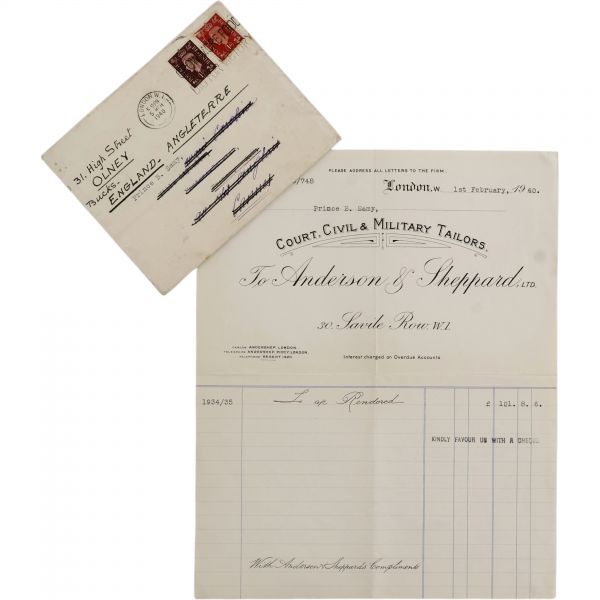 LONDON. W.1
1940
31. High Street
OLNEY
Bucks.
ENGLAND. ANGLETERRE
Prince B. Samy,
PLEASE ADDRESS ALL LETTERS TO THE FIRM
/748
London, W 1st February, 1940.
Prince B. Samy,
COURT, CIVIL & MILITARY TAILORS.
To Anderson & Sheppard, LTD.
30, Savile Row, W.1.
CABLES ANDERSHEP, LONDON.
TELEGRAMS ANDERSHEP, PICCY, LONDON.
TELEPHONE REGENT 1420
Interest charged on Overdue Accounts
1934/35 To a/c Rendered £ 101. 8. 6.
KINDLY FAVOUR US WITH A CHEQUE
With Anderson & Sheppard's Compliments